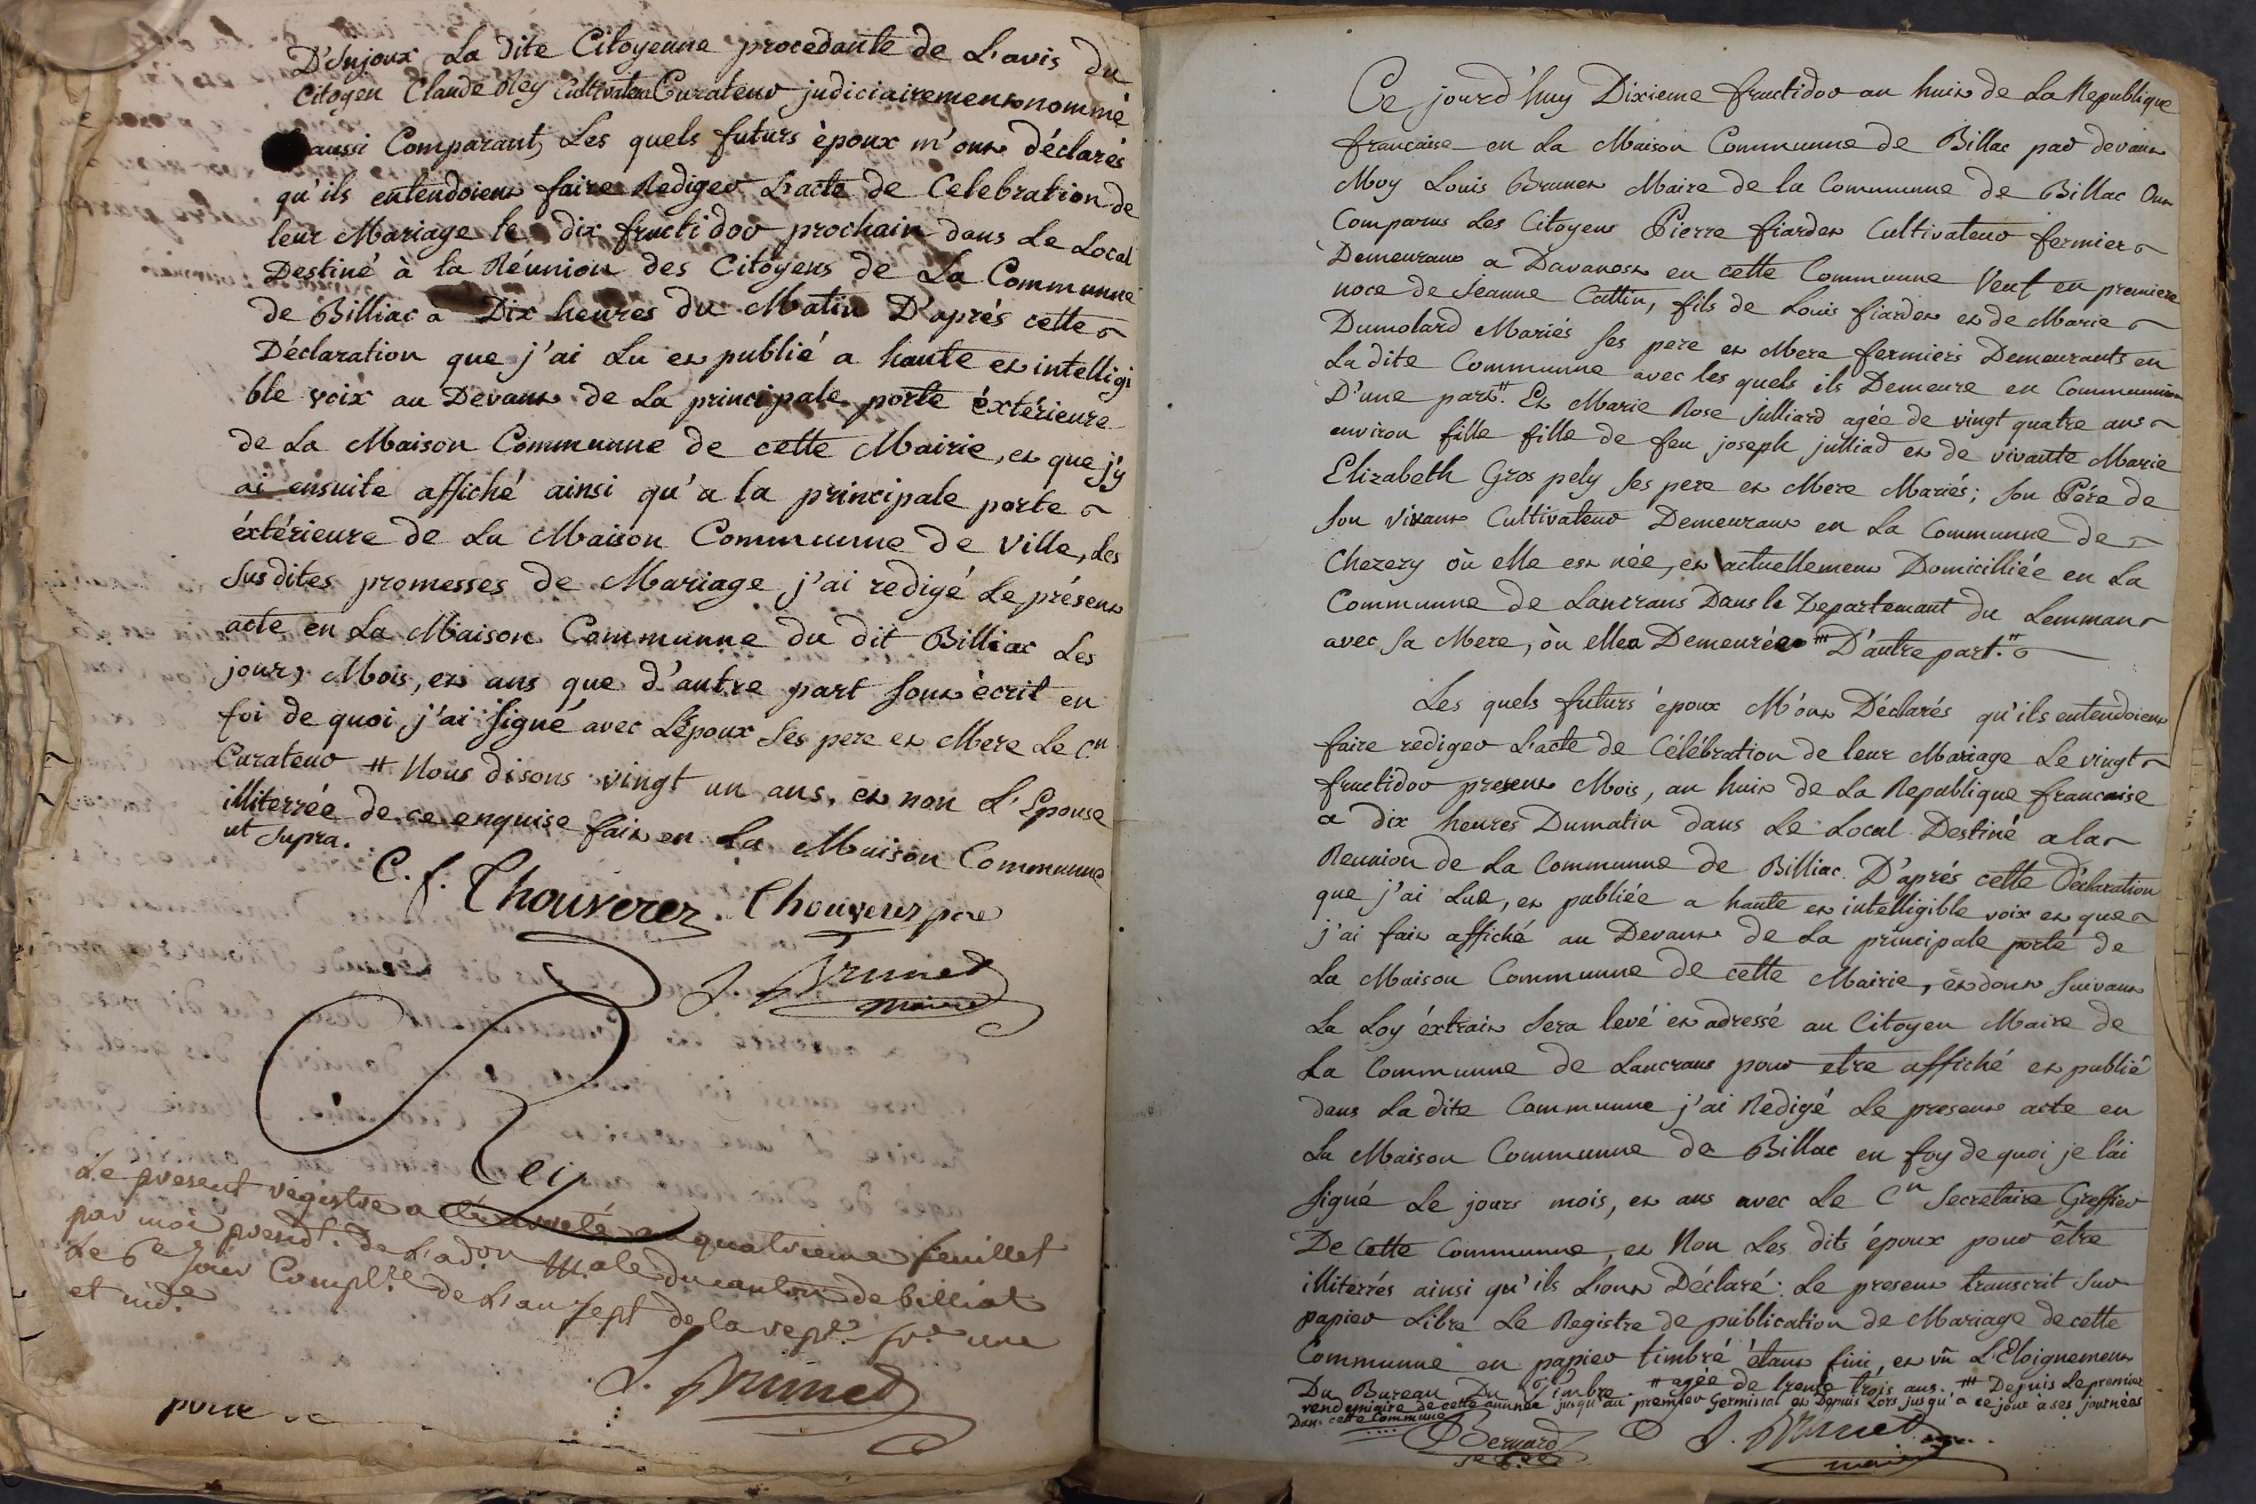 D'Injoux La dite Citoyenne procedante de L'avis du
Citoyen Claude Rey Cultivateur Curateur judiciairement nommé
aussi Comparant, Les quels futurs èpoux m'ont déclarés
qu'ils entendoient faire Rediger L'acte de Celebration de
leur Mariage le dix fructidor prochain dans Le Local
Destiné à la Réunion des Citoyens de La Communne
de Billiac a Dix heures du Matin D'aprés cette
Déclaration que j'ai Lu et publié a haute et intelligi
ble voix au Devant de La principale porte éxtérieure
de La Maison Communne de cette Mairie, et que j'y
ai ensuite affiché ainsi qu'a la principale porte
éxtérieure de La Maison Communne de Ville, Les
Susdites promesses de Mariage j'ai redigé Le présent
acte en La Maison Communne du dit Billiac Les
jour, Mois, et ans que d'autre part Sont ècrit en
foi de quoi j'ai Signé avec L'époux Ses pere et Mere Le C.n
Curateur # Nous disons vingt un ans. et non L'Epouse
illiterrée de ce enquise fait en La Maison Communne
ut Supra.
C. f. Chouverez. Chouverez pere
L. Brunet
maire
Rey
Le present régistre a été arreté au quatrieme feuillet
par moi presid.t de L'ad.on M.ale du canton de billiat
Le 6e jour Compl.re de L'an sept de la rep.e fr.e une
et ind.e
L. Brunet
pour
Ce jourd'huy Dixieme fructidor an huit de La Republique
francaise en La Maison Communne de Billac par devant
Moy Louis Brunet Maire de la Communne de Billac Ont
Comparus Les Citoyens Pierre fiardet Cultivateur fermier
Demeurant a Davanost en cette Communne Veuf en premiere
noce de Jeanne Cattin, fils de Louis fiardet et de Marie
Dumolard Mariés Ses pere et Mere fermiers Demeurants en
La dite Communne avec les quels ils Demeure en Communnion
D'une part.# Et Marie Rose Julliard agée de vingt quatre ans
environ fille fille de feu joseph julliad et de vivante Marie
Elizabeth Gros pely Ses pere et Mere Mariés; Son Pére de
Son Vivant Cultivateur Demeurant en La Communne de
Chezery où elle est née, et actuellement Domicilliée en La
Communne de Lancrans Dans le Departemant du Lemman
avec Sa Mere, òu ellea Demeurée ## D'autre part.#
Les quels futurs époux M'ont Déclarés qu'ils entendoient
faire rediger L'acte de Célébration de leur Mariage Le vingt
fructidor present Mois, an huit de La Republique francaise
a dix heures Dumatin dans Le Local Destiné a la
Reunion de La Communne de Billiac. D'aprés cette Déclaration
que j'ai Lue, et publiée a haute et intelligible voix et que
j'ai fait affiché au Devant de La principale porte de
La Maison Communne de cette Mairie, et dont Suivant
La Loy éxtrait Sera levé et adressé au Citoyen Maire de
La Communne de Lancrans pour etre affiché et publié
dans La dite Communne j'ai Redigé Le present acte en
La Maison Communne de Billac en foy de quoi je l'ai
Signé Le jours mois, et ans avec Le C.n Secretaire Greffier
De Cette Communne, et Non Les dits époux pour être
illiterrés ainsi qu'ils L'ont Déclaré: Le present transcrit Sur
papier Libre Le Registre de publication de Mariage de cette
Communne en papier timbré étant fini, et vû L'Eloignement
Du Bureau Du Timbre. # agée de trente trois ans. ## Depuis Le premier
vendemiaire de cette année jusqu'au premier Germinal et Depuis Lors jusqu'a ce jour a ses journées
Dans cette Communne
Bernard
L. Brunet
maire